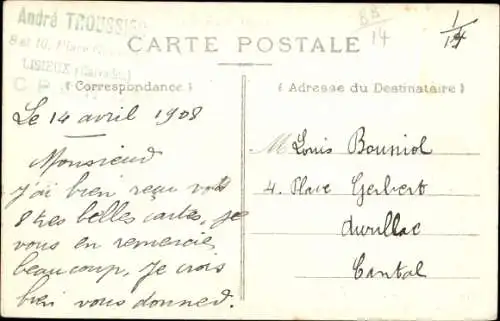 André TROUSSIER
8 et 10, Place
LISIEUX (Calvados)
C P
88
14
1/14
CARTE POSTALE
(Correspondance)
(Adresse du Destinataire)
Le 14 avril 1908
Monsieur
J'ai bien reçu vos
8 tres belles cartes, je
vous en remercie
beaucoup, Je crois
bien vous donner.
M Louis Bouniol
4. Place Gerbert
Aurillac
Cantal